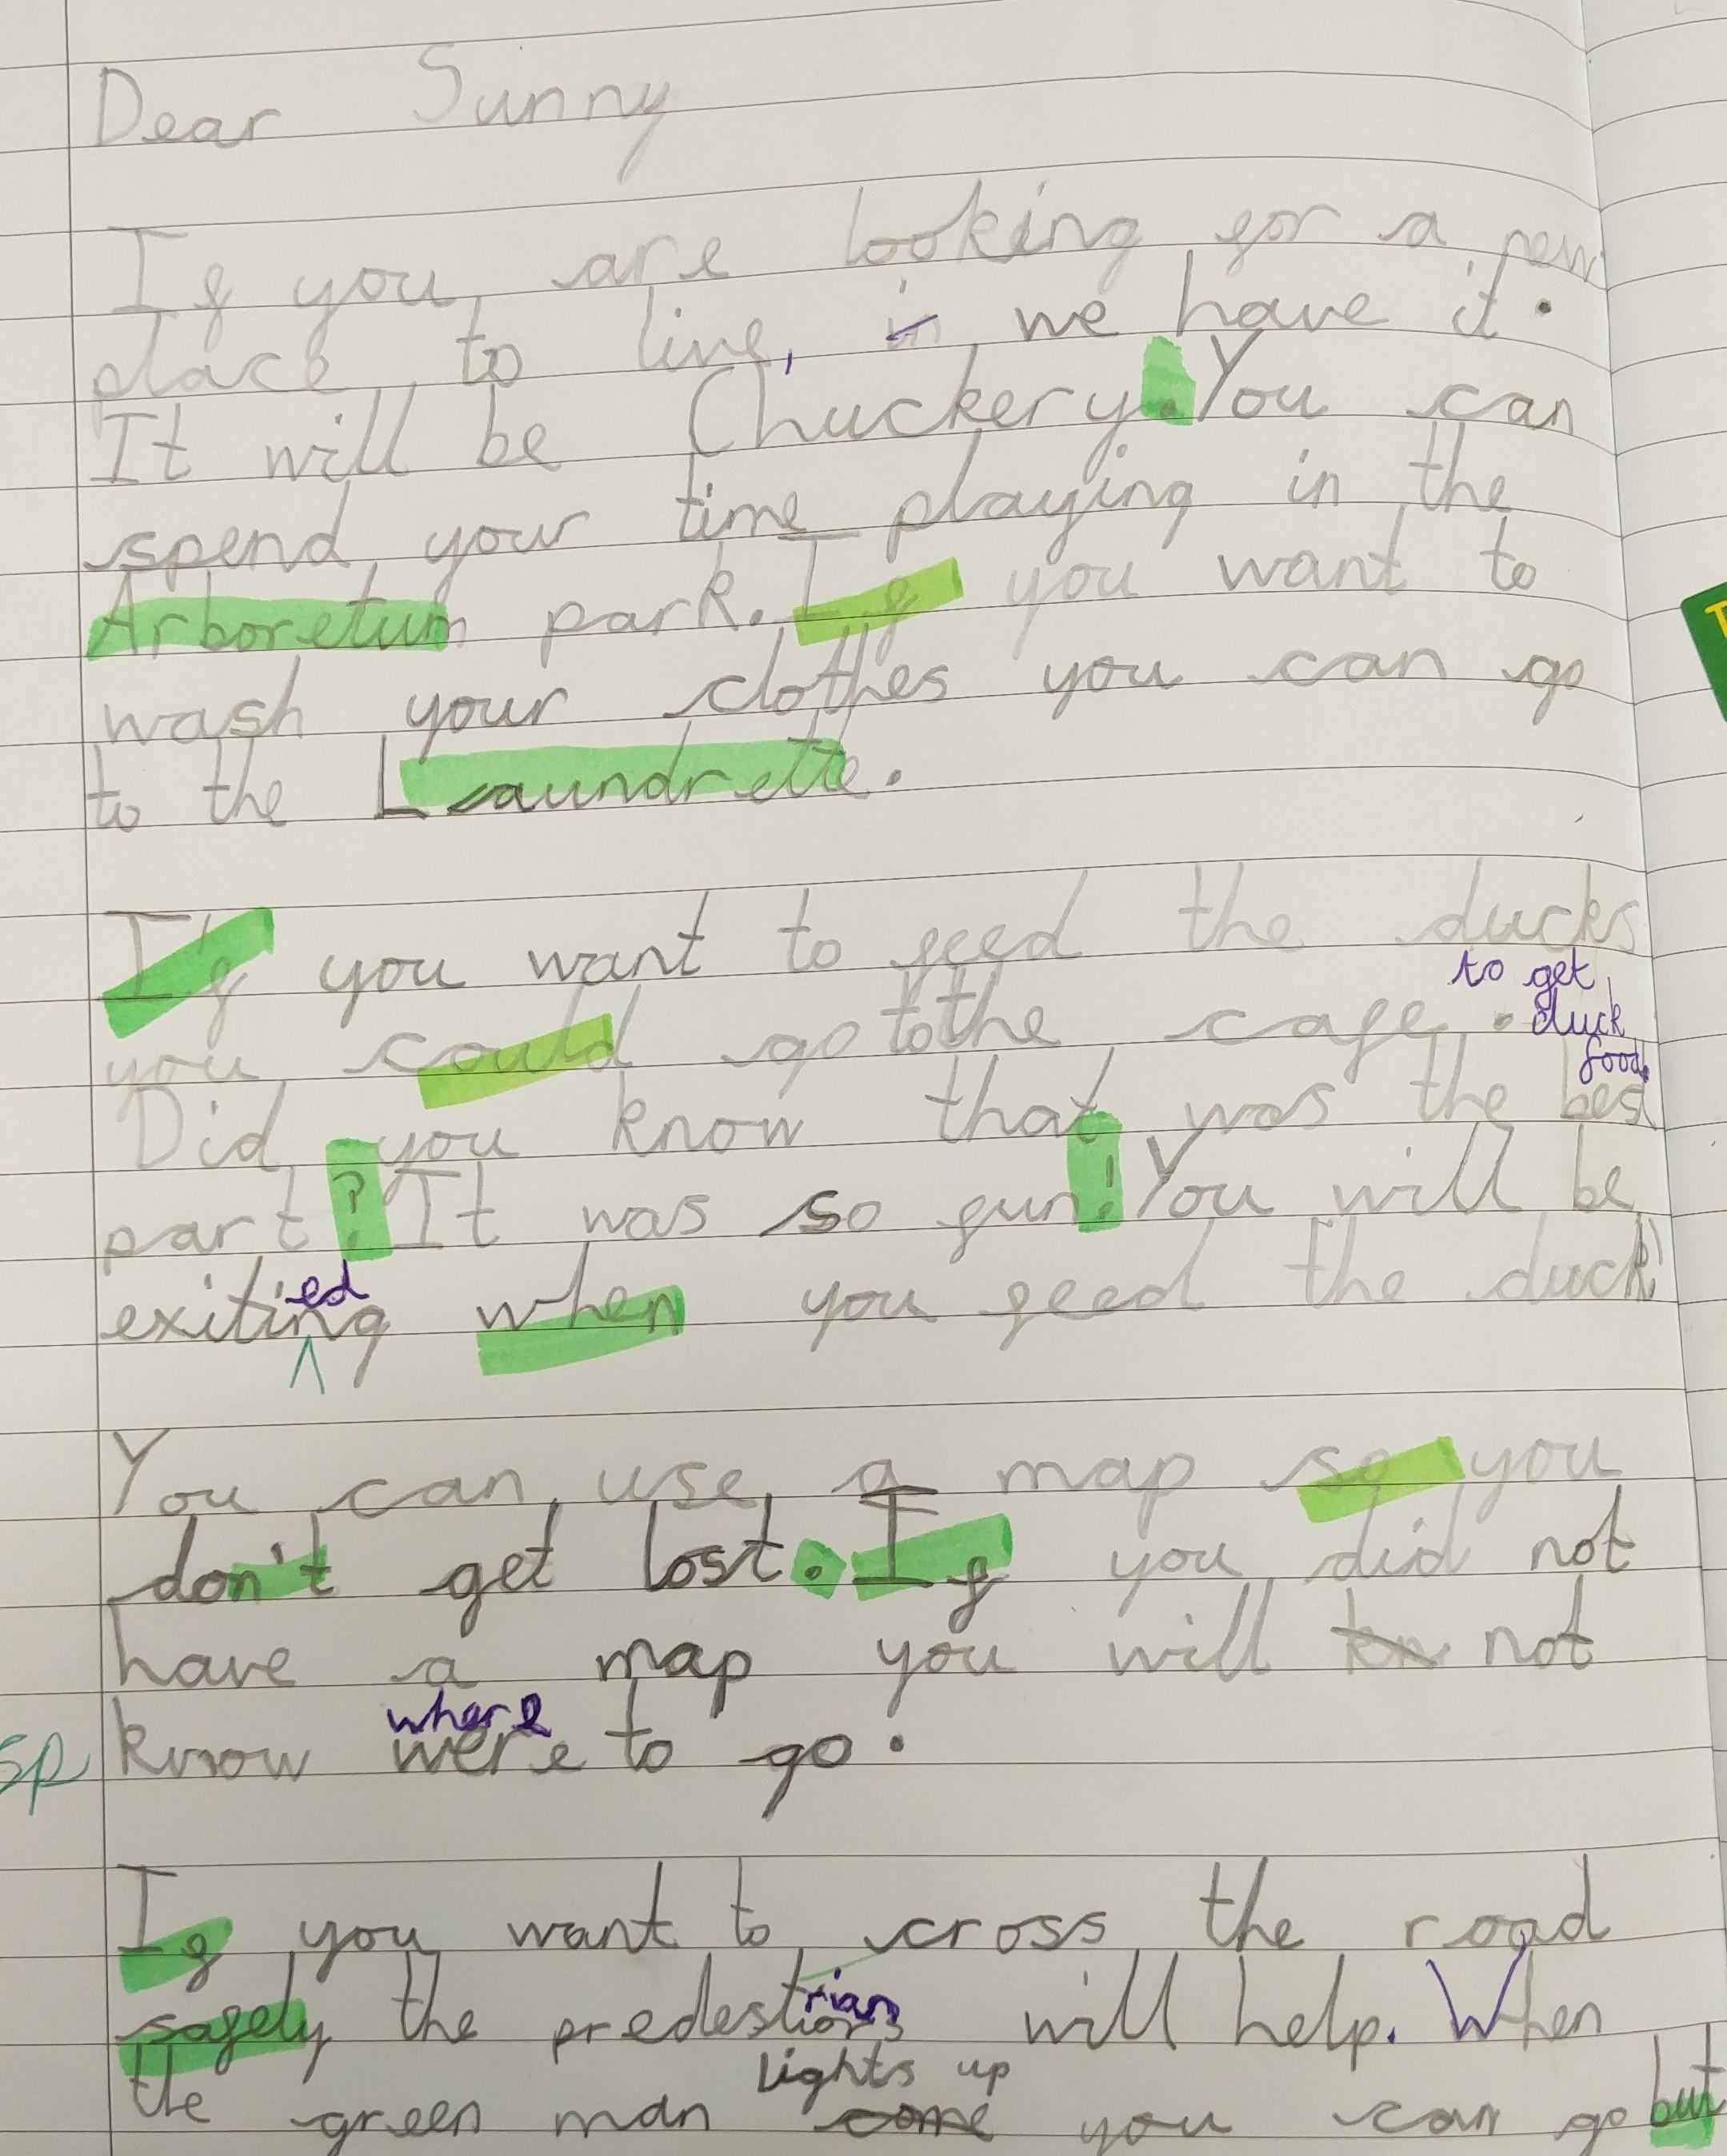 Dear Sunny
If you are looking for a new
place to live, in we have it.
It will be Chuckery. You can
spend your time playing in the
Arboretum park. If you want to
wash your clothes you can go
to the Laundrette.
If you want to feed the ducks
to get
you could go to the cafe. duck
food.
Did you know that was the best
part? It was so fun! You will be
ed
exiting when you feed the duck
You can use a map so you
don't get lost. If you did not
have a map you will kn not
where
sp know were to go.
If you want to cross the road
rian
safely the predestions will help. When
lights up
the green man come you can go but